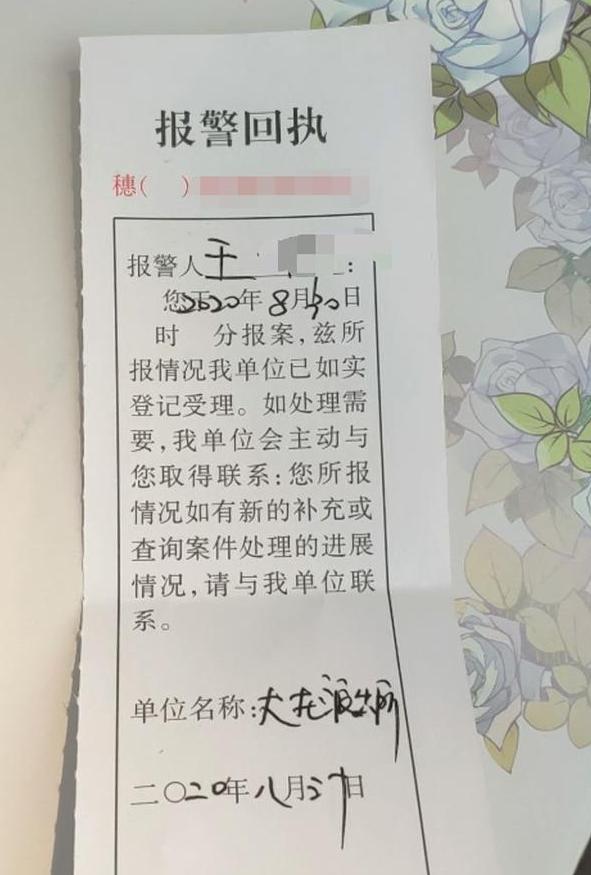 报警回执
穗( )
报警人王 :
您于2020年8月30日
时 分报案,兹所
报情况我单位已如实
登记受理。如处理需
要,我单位会主动与
您取得联系:您所报
情况如有新的补充或
查询案件处理的进展
情况,请与我单位联
系。
单位名称:大龙派出所
二〇二〇年八月 日